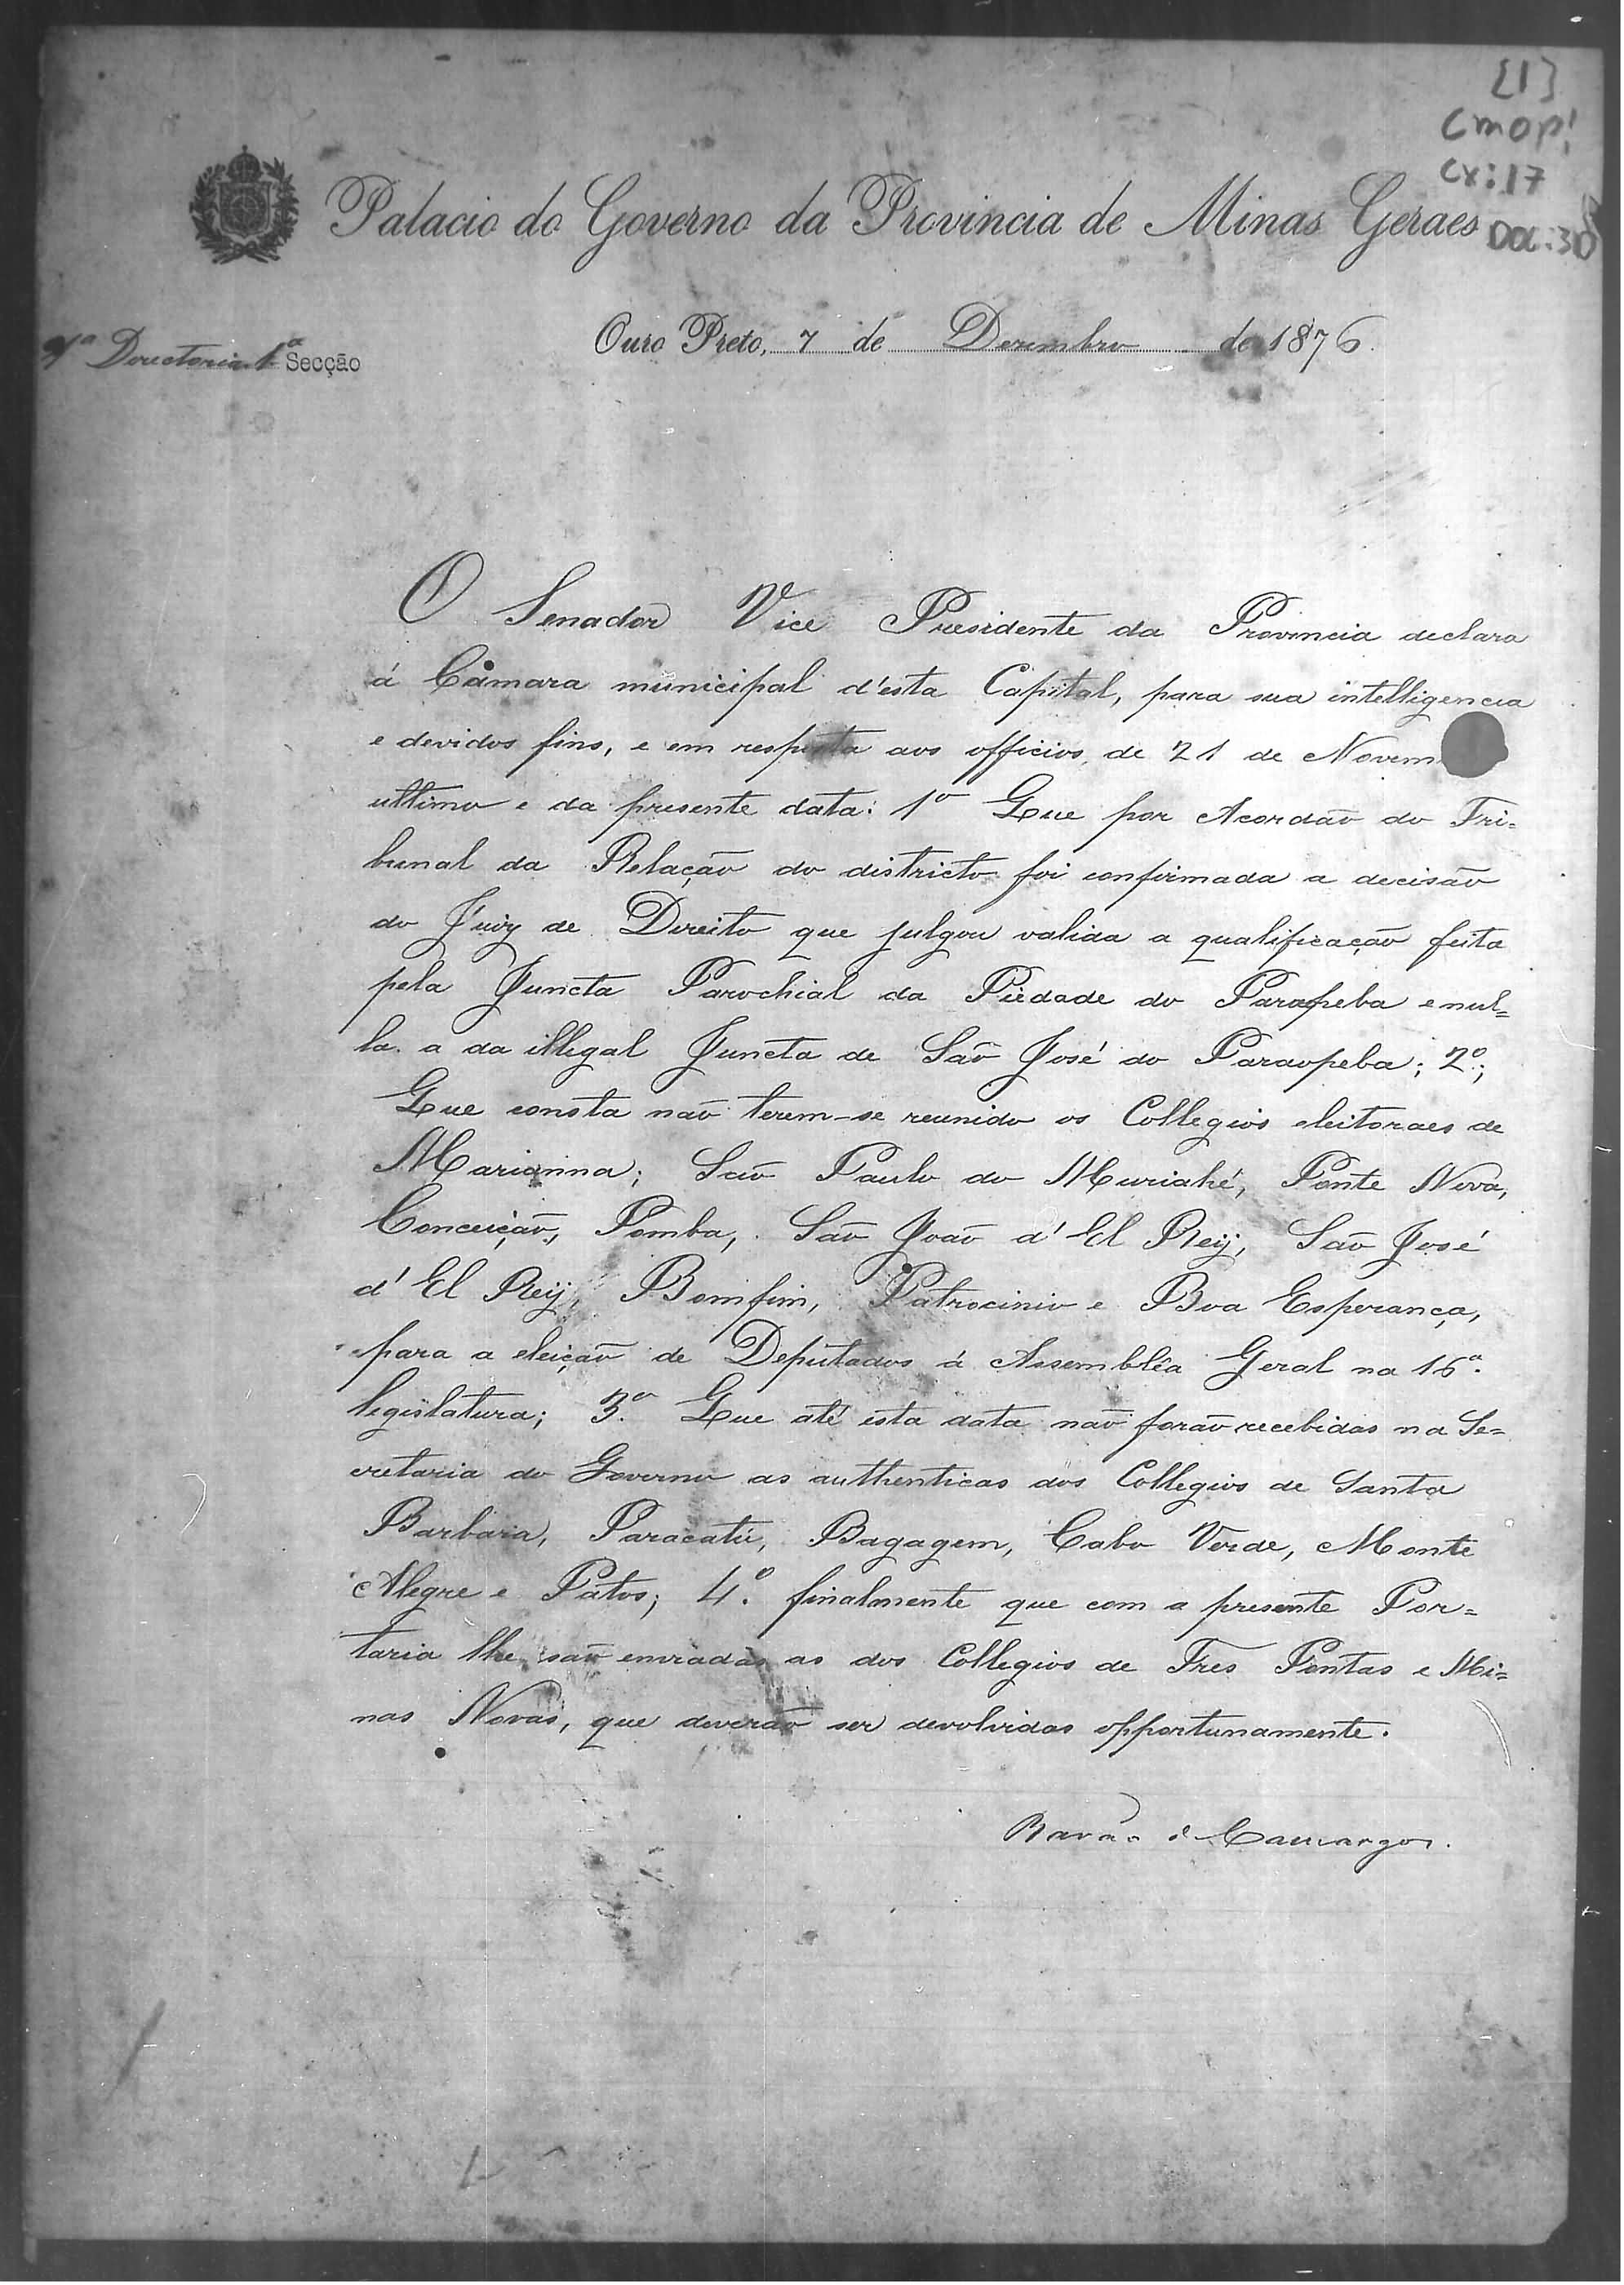 [1]
CMOP!
CX:17
DOC:30
Palacio do Governo da Provincia de Minas Geraes
Ouro Preto, 7 de Dezembro de 1876.
1ª Directoria 1ª Secção
O Senador Vice Presidente da Provincia declara
á Câmara municipal d'esta Capital, para sua intelligencia
e devidos fins, e em resposta aos officios, de 21 de Novem
ultimo e da presente data: 1º Que por Acordão do Tri=
bunal da Relação do districto foi confirmada a decisão
do Juiz de Direito que julgou valida a qualificação feita
pela Juncta Parochial da Piedade do Paraopeba e nul=
la a da illegal Juncta de São José do Paraopeba; 2º;
Que consta não terem-se reunido os Collegios eleitoraes de
Marianna; São Paulo do Muriahé, Ponte Nova,
Conceição, Pomba, São João d'El Rey, São José
d'El Rey, Bomfim, Patrocinio e Boa Esperança,
para a eleição de Deputados á Assembléa Geral na 16ª
legislatura; 3º Que até esta data não forão recebidas na Se=
cretaria do Governo as authenticas dos Collegios de Santa
Barbara, Paracatú, Bagagem, Cabo Verde, Monte
Alegre e Patos; 4º finalmente que com a presente Por=
taria lhe são enviadas as dos Collegios de Tres Pontas e Mi=
nas Novas, que deverão ser devolvidas opportunamente.
Barão de Camargos.